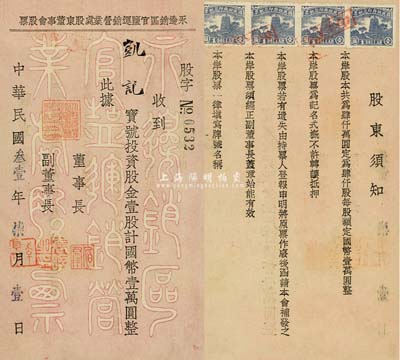 票股會事董東股處業營銷運鹽官區銷邊永
股字 No 0532
收到
凱記 寶號投資股金壹股計國幣壹萬圓整
此據
董事長
副董事長
中華民國叁壹年 月壹日
股東須知
本岸股本共為肆仟萬圓定為肆仟股每股額定國幣壹萬圓整
本岸股票為記名式概不許轉讓抵押
本岸股票若有遺失由持票人登報申明將原票作廢後函請本會補發之
本岸股票須經正副董事長蓋章始能有效
本岸股票一律填為牌號名稱
上海陽明拍賣
www.yangmingauction.com